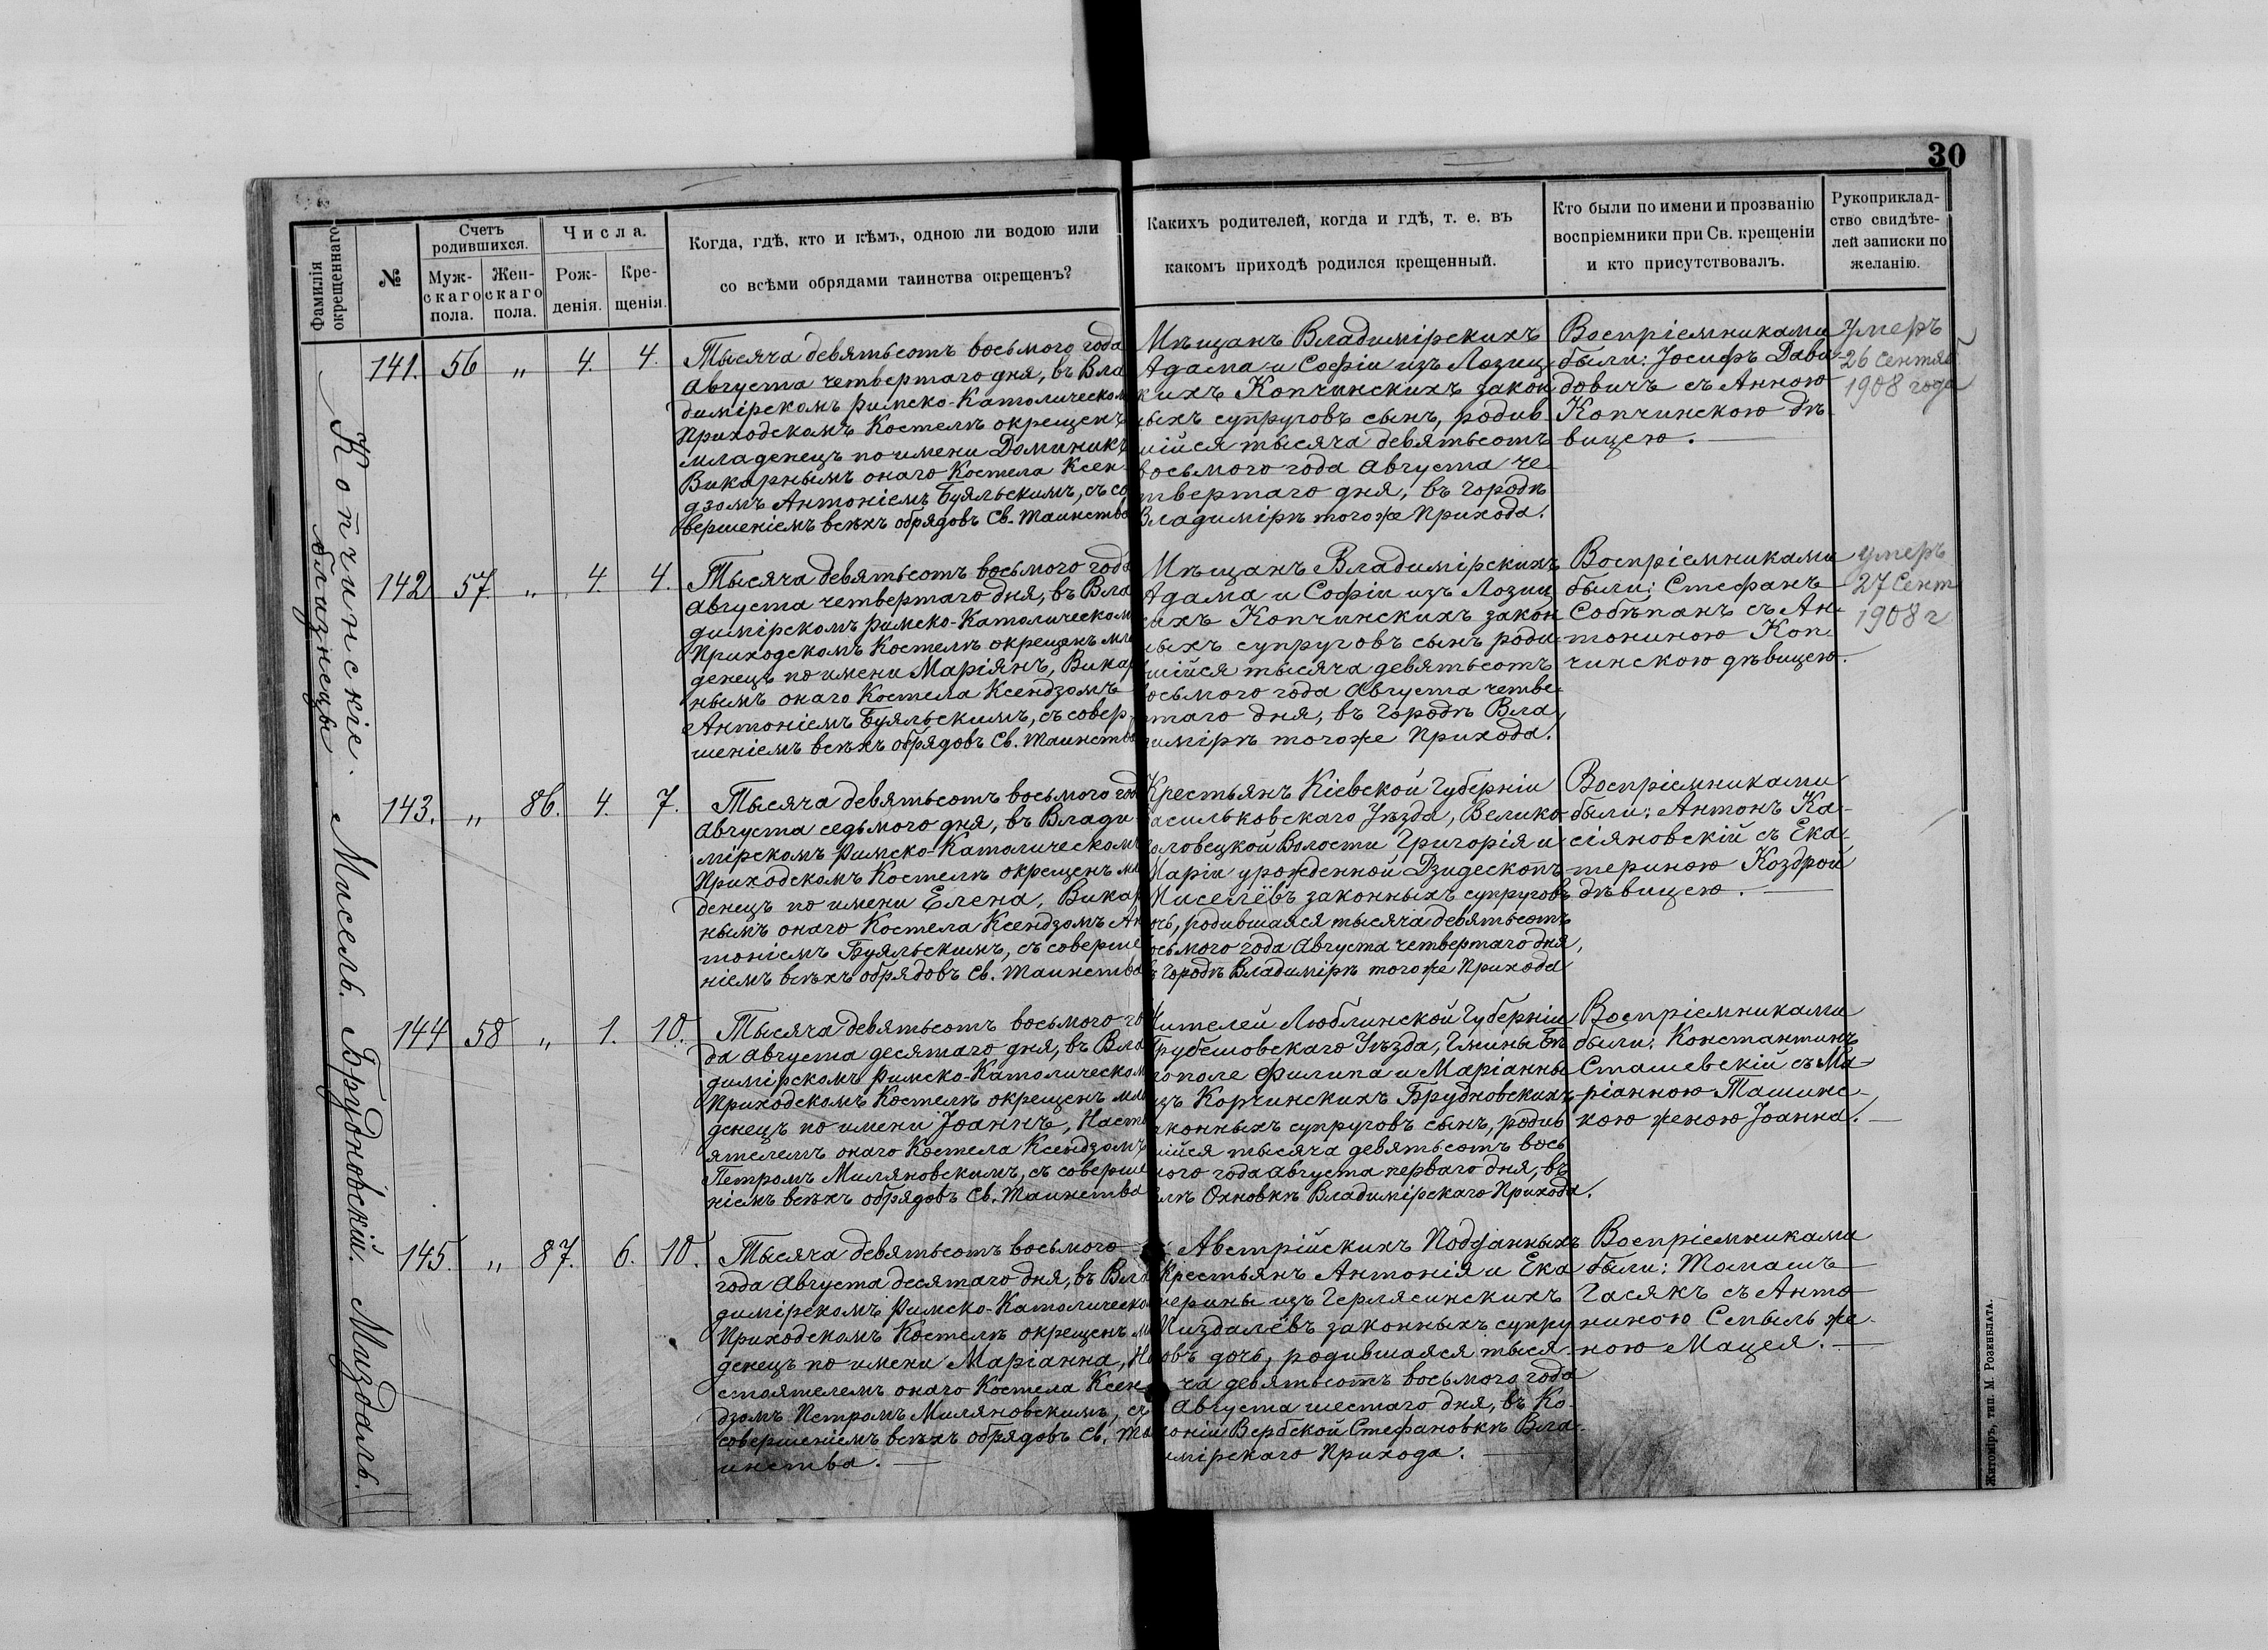 30
Фамилія окрещеннаго.
№
Счетъ родившихся.
Муж-
скаго
пола.
Жен-
скаго
пола.
Числа.
Рож-
денія.
Кре-
щенія.
Когда, гдѣ, кто и кѣмъ, одною ли водою или
со всѣми обрядами таинства окрещенъ?
Какихъ родителей, когда и гдѣ, т. е. въ
какомъ приходѣ родился крещенный.
Кто были по имени и прозванію
воспріемники при Св. крещеніи
и кто присутствовалъ.
Рукоприклад-
ство свидѣте-
лей записки по
желанію.
Копчинскіе.
близнецы
141. 56 " 4. 4.
Тысяча девятьсотъ восьмого года
Августа четвертаго дня, въ Вла
димірскомъ Римско-Католическом
Приходскомъ Костелѣ окрещенъ
младенецъ по имени Доминикъ
Викарнымъ онаго Костела Ксен-
дзомъ Антоніемъ Буяльскимъ, съ со
вершеніемъ всѣхъ обрядовъ Св. Таинства
Мѣщанъ Владимірскихъ
Адама и Софіи изъ Лозиц-
кихъ Копчинскихъ закон
ныхъ супруговъ сынъ, родив-
шійся тысяча девятьсотъ
восьмого года Августа че-
твертаго дня, въ городѣ
Владимірѣ того же Прихода.
Воспріемниками
были: Іосифъ Дави-
довичъ съ Анною
Копчинскою дѣ-
вицею.
Умеръ
26 Сентяб
1908 года
142 57. " 4. 4.
Тысяча девятьсотъ восьмого года
Августа четвертаго дня, въ Вла
димірскомъ Римско-Католическом
Приходскомъ Костелѣ окрещенъ мла
денецъ по имени Маріянъ, Викар
нымъ онаго Костела Ксендзомъ
Антоніемъ Буяльскимъ, съ совер-
шеніемъ всѣхъ обрядовъ Св. Таинства
Мѣщанъ Владимірскихъ
Адама и Софіи изъ Лозиц
кихъ Копчинскихъ закон
ныхъ супруговъ сынъ роди-
вшійся тысяча девятьсотъ
восьмого года Августа четве-
ртаго дня, въ городѣ Вла
димірѣ того же Прихода.
Воспріемниками
были: Стефанъ
Собѣпанъ съ Ан-
тониною Коп-
чинскою дѣвицею.
умеръ
27 Сент
1908 г
Мисель.
143. " 86. 4. 7.
Тысяча девятьсотъ восьмого год
Августа седьмого дня, въ Влади
мірскомъ Римско-Католическомъ
Приходскомъ Костелѣ окрещенъ мла
денецъ по имени Елена, Викар
нымъ онаго Костела Ксендзомъ Ан
тоніемъ Буяльскимъ, съ соверше
ніемъ всѣхъ обрядовъ Св. Таинства
Крестьянъ Кіевской Губерніи
Васильковскаго Уѣзда, Велико-
половецкой Волости Григорія и
Маріи урожденной Дзидескотъ
Миселёвъ законныхъ супруговъ
дочь, родившаяся тысяча девятьсотъ
восьмого года Августа четвертаго дня,
въ городѣ Владимірѣ того же Прихода
Воспріемниками
были: Антонъ Ка-
сіяновскій съ Ека-
териною Коздрой
дѣвицею.
Брудновскій.
144 58 " 1. 10.
Тысяча девятьсотъ восьмого го
да Августа десятаго дня, въ Вла
димірскомъ Римско-Католическом
Приходскомъ Костелѣ окрещенъ мла
денецъ по имени Іоаннъ, Насто
ятелемъ онаго Костела Ксендзомъ
Петромъ Миляновскимъ, съ соверше
ніемъ всѣхъ обрядовъ Св. Таинства
Жителей Люблинской Губерніи
Грубешовскаго Уѣзда, Гмины Бѣ
лополе Филипа и Маріанны
изъ Корчинскихъ Брудновскихъ
законныхъ супруговъ сынъ, родив
шійся тысяча девятьсотъ вось
мого года Августа перваго дня, въ
селѣ Охновкѣ Владимірскаго Прихода.
Воспріемниками
были: Константинъ
Сташевскій съ Ма-
ріанною Ташинс-
кою женою Іоанна.
Миздаль.
145. " 87. 6. 10.
Тысяча девятьсотъ восьмого
года Августа десятаго дня, въ Вла
димірскомъ Римско-Католическо
Приходскомъ Костелѣ окрещенъ мла
денецъ по имени Маріанна, На
стоятелемъ онаго Костела Ксен-
дзомъ Петромъ Миляновскимъ, съ
совершеніемъ всѣхъ обрядовъ Св. Та
инства.
Австрійскихъ Подданныхъ
Крестьянъ Антонія и Ека
терины изъ Герлясинскихъ
Миздалёвъ законныхъ супру
говъ дочь, родившаяся тыся
ча девятьсотъ восьмого года
Августа шестаго дня, въ Ко-
лоніи Вербской Стефановкѣ Вла-
димірскаго Прихода.
Воспріемниками
были: Томашъ
Гасякъ съ Анто
ниною Смыль же-
ною Мацея.
Житомiръ, тип. М. Розенблата.